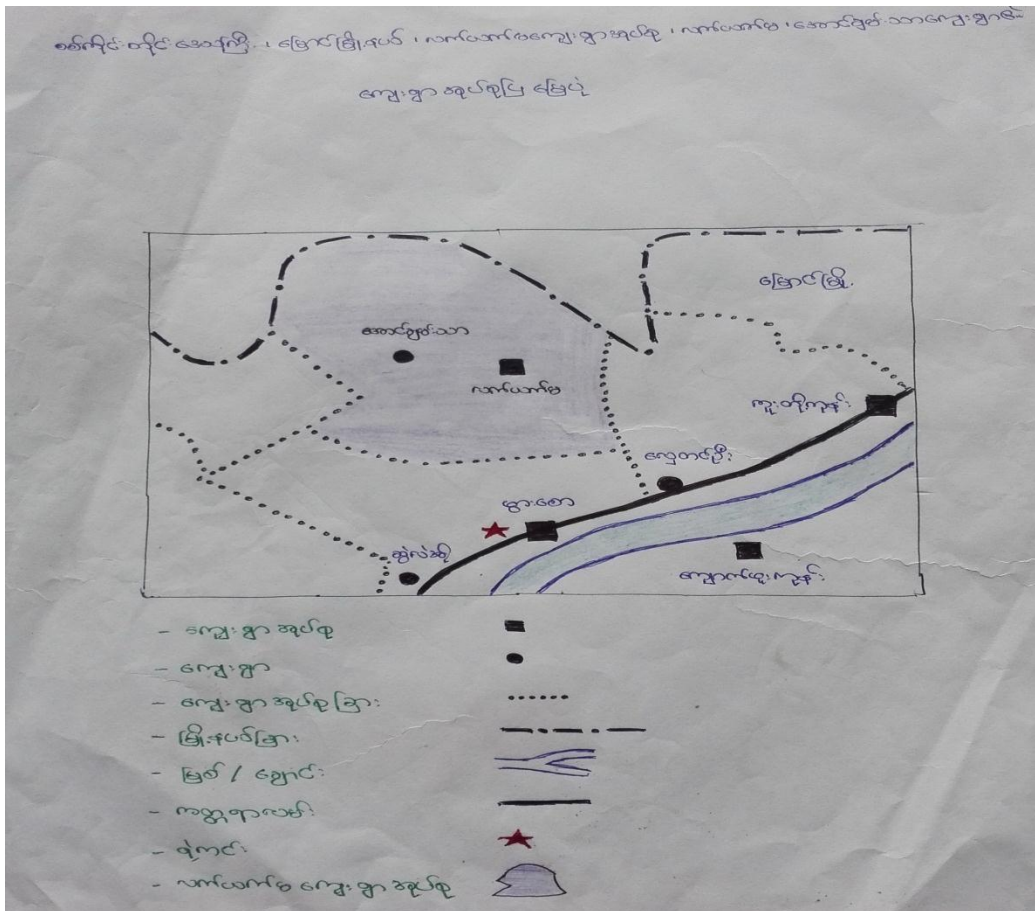 စစ်ကိုင်းတိုင်းဒေသကြီး ၊ မြောင်မြို့နယ် ၊ လက်ယက်မကျေးရွာအုပ်စု ၊ လက်ယက်မ ၊ အောင်ချမ်းသာကျေးရွာ
ကျေးရွာအုပ်စုပြ မြေပုံ
မြောင်မြို့
အောင်ချမ်းသာ
လက်ယက်မ
ကူးတို့ကုန်း
လှေတင်ဦး
မွားတော
ဆွဲလဲအို
ကျောက်ထူးကုန်း
- ကျေးရွာအုပ်စု
- ကျေးရွာ
- ကျေးရွာအုပ်စုခြား
- မြို့နယ်ခြား
- မြစ် / ချောင်း
- ကတ္တရာလမ်း
- ရဲကင်း
- လက်ယက်မ ကျေးရွာအုပ်စု